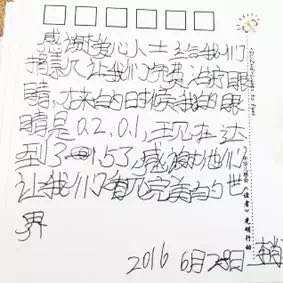 感谢爱心人士给我们
捐款让我们免费治疗眼
睛,才来的时候我的眼
睛是0.2,0.1,现在达
到了 1.5了,感谢他们
让我们看见完美的世
界
2016 6月28日
《读者》光明行动